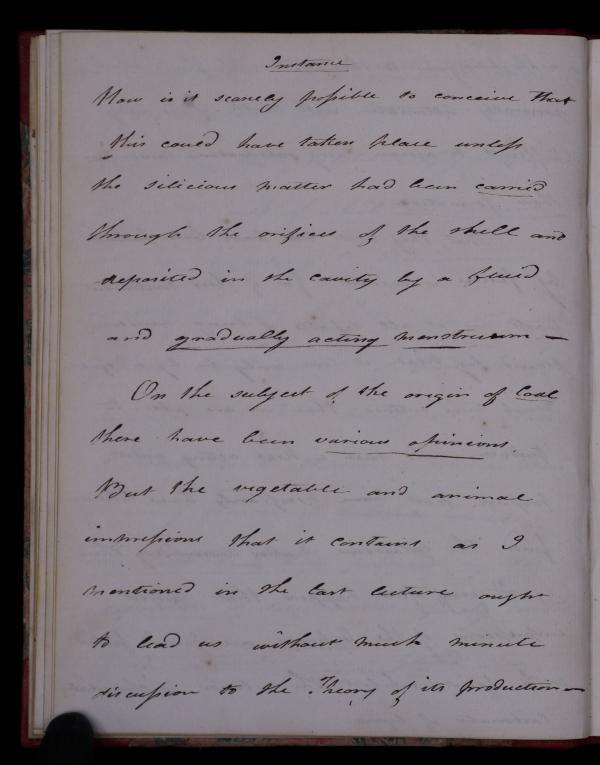 Instance
Now is it scarcely possible to conceive that
this could have taken place unless
the silicious matter had been carried
through the orifices of the shell and
deposited in the cavity by a fluid
and gradually acting menstruum —
On the subject of the origin of Coal
there have been various opinions.
But the vegetable and animal
impressions that it contains as I
mentioned in the last lecture ought
to lead us without much minute
discussion to the Theory of its production —